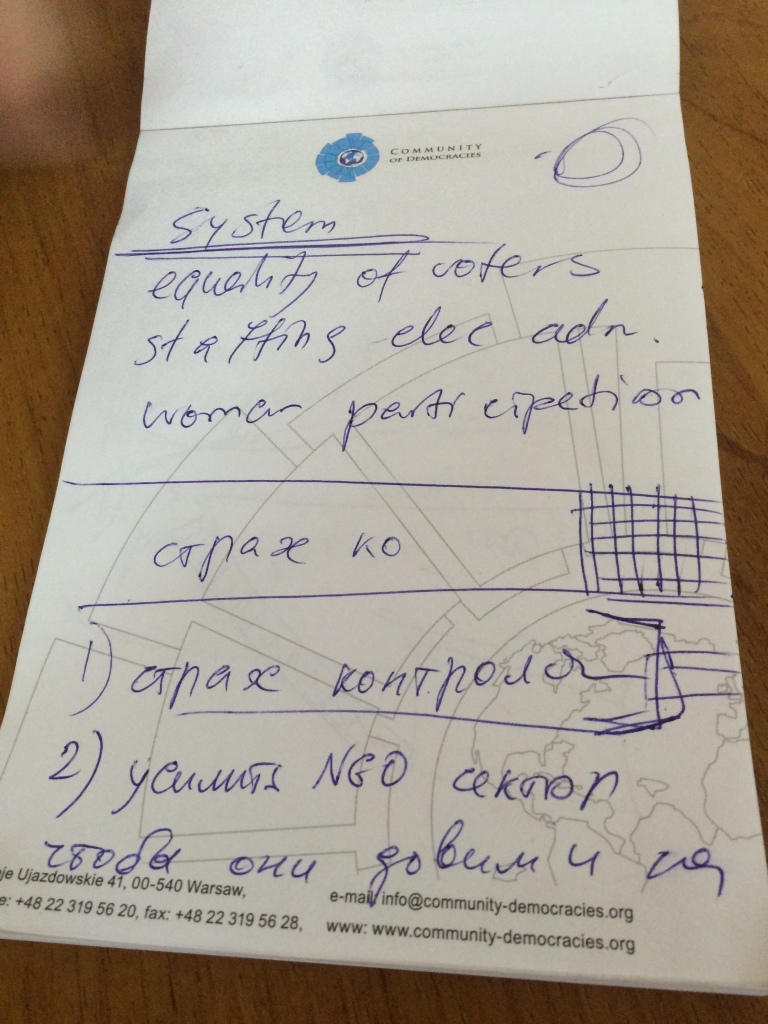 COMMUNITY
OF DEMOCRACIES
System
equality of voters
staffing elec adm.
woman participation
страх ко
1) страх контроля
2) усилить NGO сектор
чтобы они довили на
je Ujazdowskie 41, 00-540 Warsaw,
e: +48 22 319 56 20, fax: +48 22 319 56 28,
e-mail: info@community-democracies.org
www: www.community-democracies.org